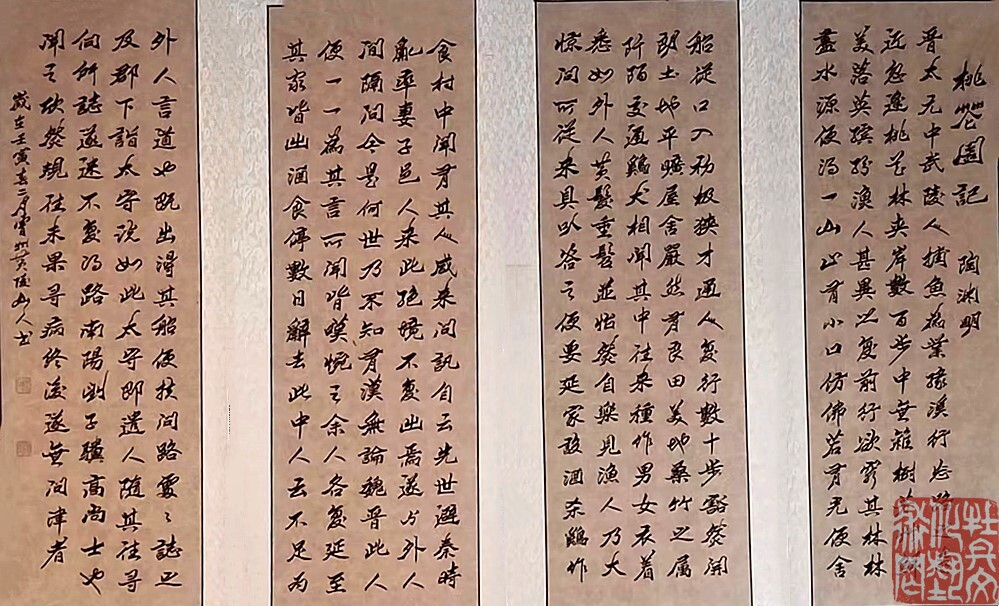 桃花園記 陶淵明
晉太元中武陵人捕魚為業緣溪行忘路
近忽逢桃花林夾岸數百步中無雜樹
美落英繽紛漁人甚異之复前行欲窮其林林
盡水源便得一山山有小口仿佛若有光便舍
船從口入初極狹才通人复行數十步豁然開
朗土地平曠屋舍嚴然有良田美池桑竹之属
阡陌交通鷄犬相聞其中往来種作男女衣着
悉如外人黃髮垂髫並怡然自樂見漁人乃大
惊问所從来具以答之便要延家設酒杀鷄作
食村中聞有其人咸来问訊自云先世避秦時
亂率妻子邑人来此絕境不复出焉遂与外人
间隔问今是何世乃不知有漢無論魏晉此人
便一一為其言所聞皆嘆惋之余人各复延至
其家皆出酒食停數日辭去此中人云不足為
外人言道也既出得其船便扶问路處〻誌之
及郡下詣太守說如此太守即遣人隨其往尋
向所誌遂迷不复得路南陽劉子驥高尚士也
聞之欣然規往未果尋病終後遂無问津者
歲在壬寅春三月山人书